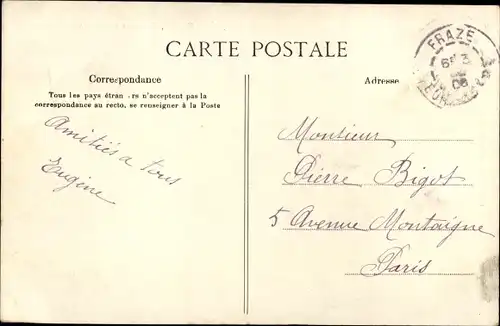 CARTE POSTALE
Correspondance
Tous les pays étran rs n'acceptent pas la
correspondance au recto, se renseigner à la Poste
Amitiés a tous
Eugène
Adresse
FRAZÉ
Monsieur
Pierre Bigot
5 Avenue Montaigne
Paris